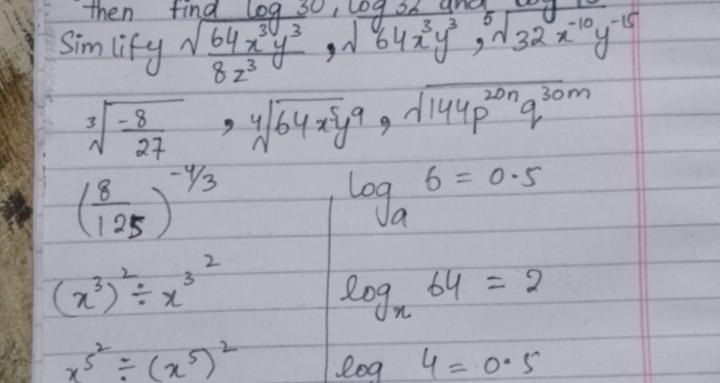 then find log 30, log 32 and log
Simlify √(64x³y³/8z³), √64x³y³, ⁵√32x⁻¹⁰y⁻¹⁵
³√(-8/27), ⁴√64x⁵y⁹, √144p²⁰ⁿq³⁰ᵐ
(8/125)^(-4/3)
logₐ 6 = 0.5
(x³)² ÷ x^3^2
logₓ 64 = 2
x^5^2 ÷ (x⁵)²
log 4 = 0.5